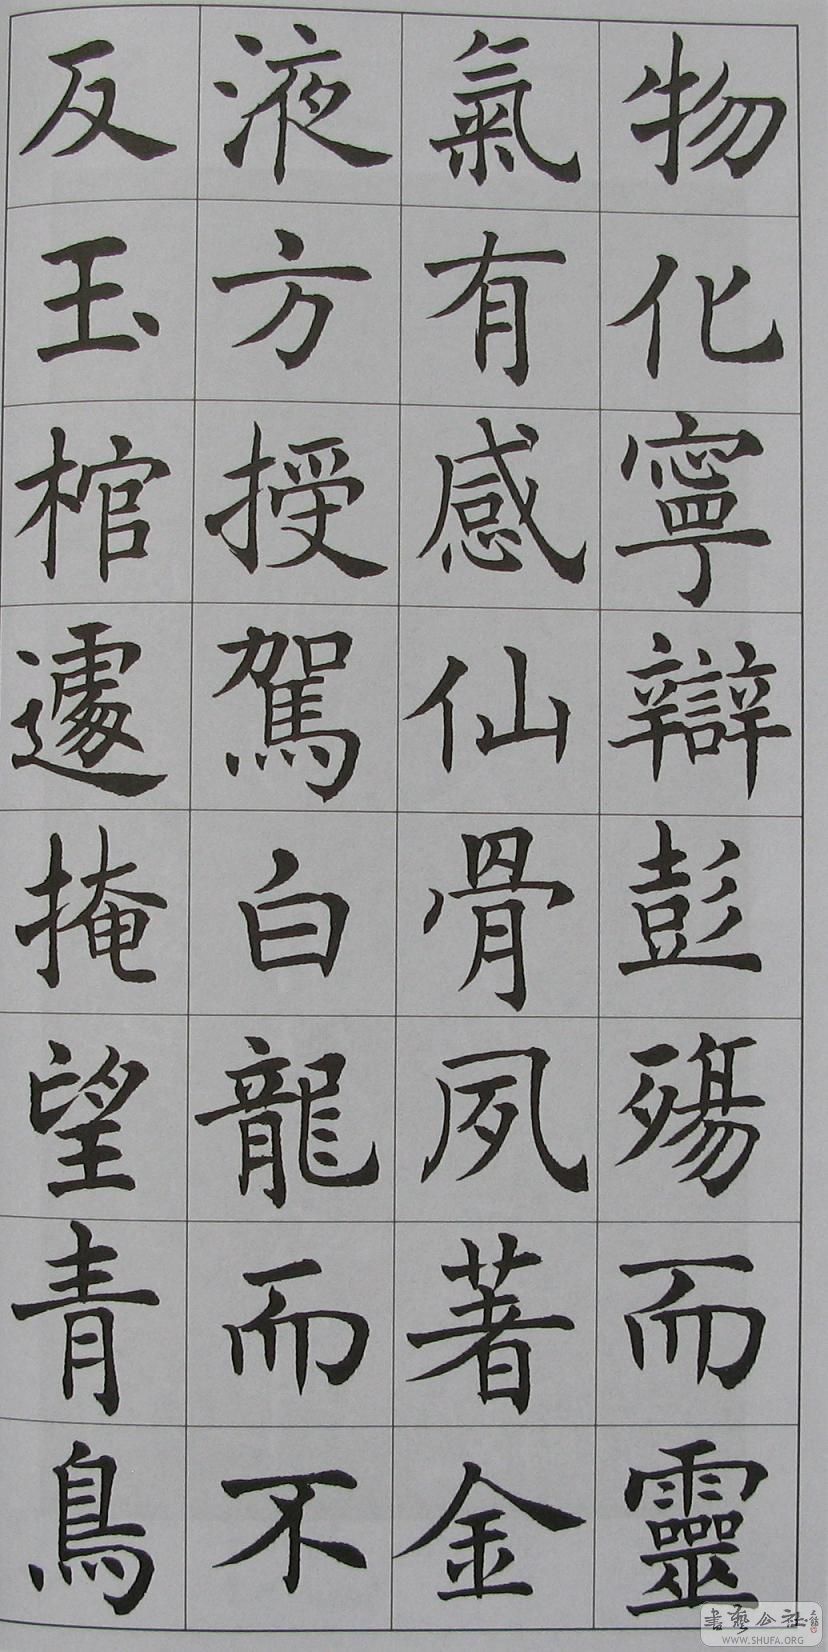 物化寧辯彭殤而靈
氣有感仙骨夙著金
液方授駕白龍而不
反玉棺遽掩望青鳥
書藝公社
www.SHUFA.ORG